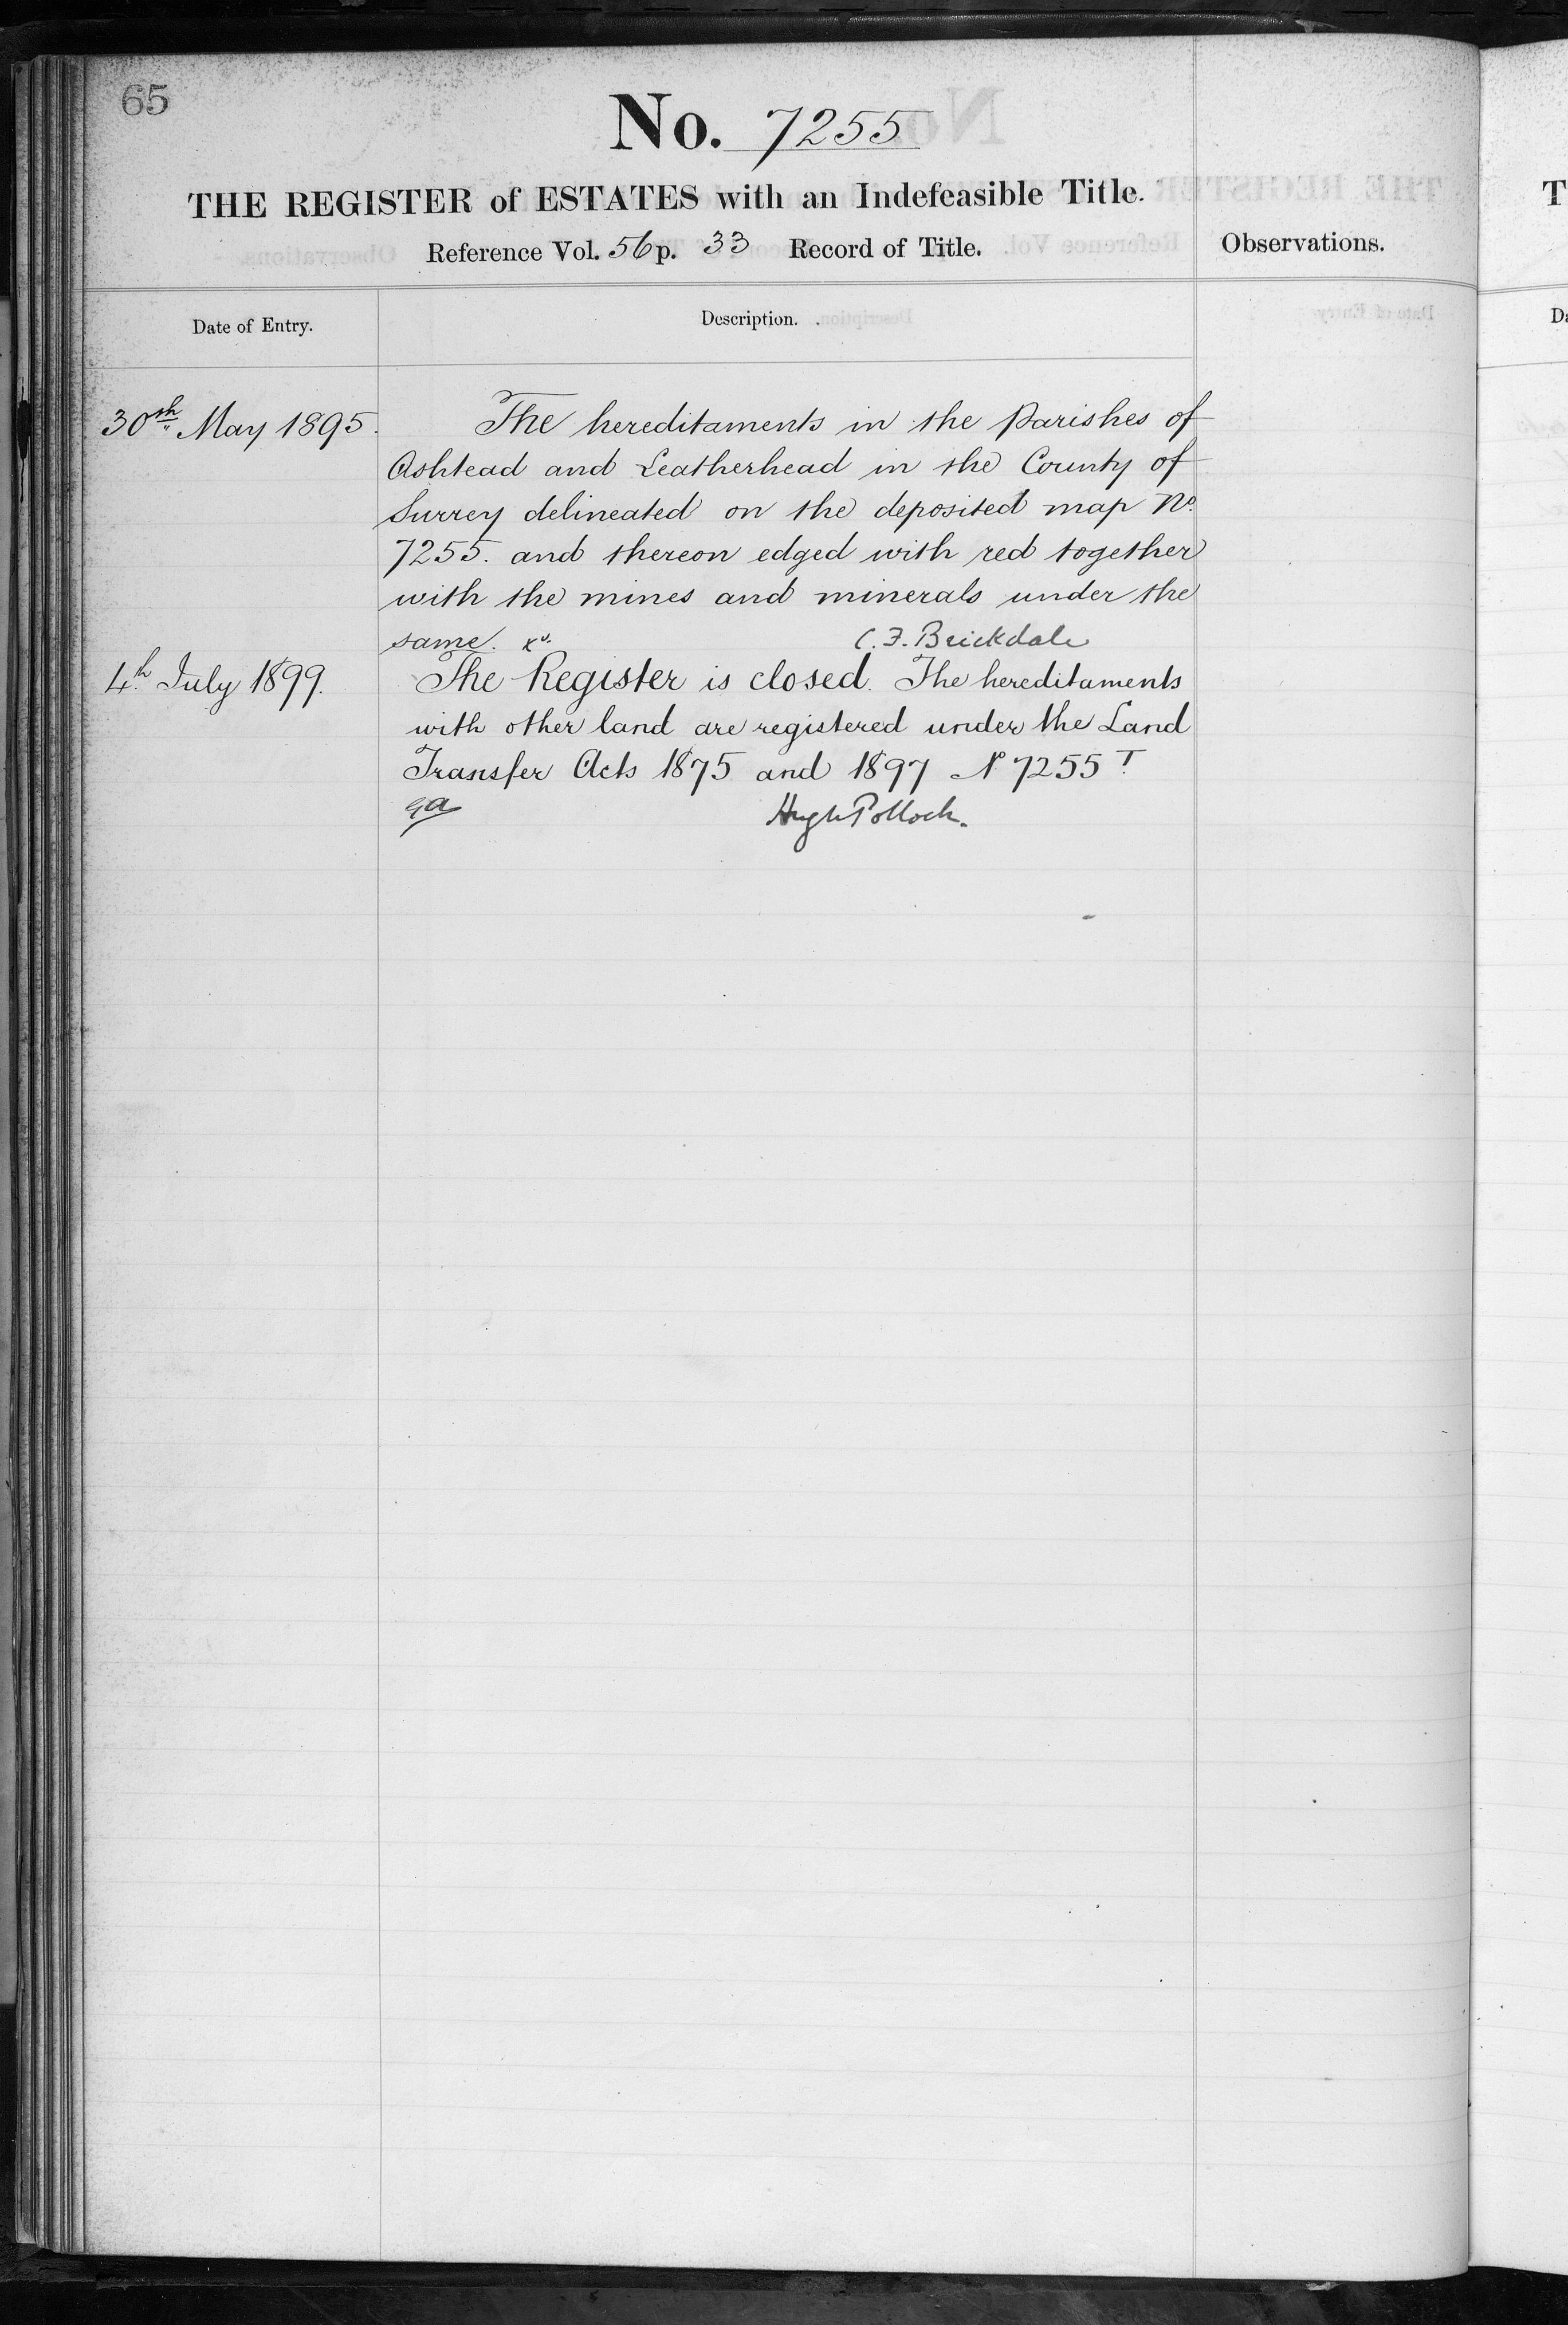 65
No. 7255
THE REGISTER of ESTATES with an Indefeasible Title.
Reference Vol. 56 p. 33 Record of Title.
Observations.
Date of Entry.
Description.
30th May 1895.
The hereditaments in the Parishes of
Ashtead and Leatherhead in the County of
Surrey delineated on the deposited map No.
7255. and thereon edged with red together
with the mines and minerals under the
same.
C. F. Brickdale
4th July 1899.
The Register is closed. The hereditaments
with other land are registered under the Land
Transfer Acts 1875 and 1897 No 7255 T.
Hugh Pollock.